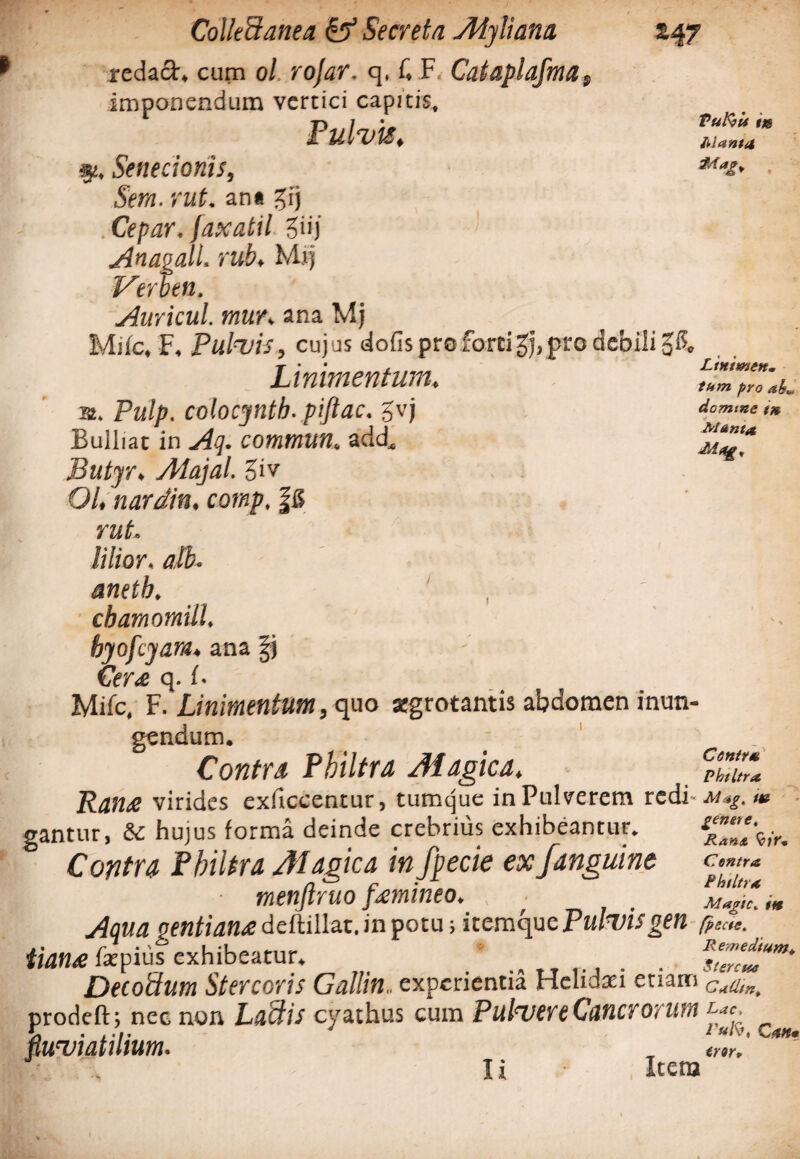 Collectanea & Secreta Myliana 247
redact. cum ol. rosar. q. ſ. F. Cataplaſma,
imponendum vertici capitis.
Pulvis.
Pulvis in
Mania
Mag.
℞. Senecionis,
Sem. rut. ana ʒij
Cepar. ſaxatil ʒiij
Anagall. rub. Mij
Verben.
Auricul. mur. ana Mj
Miſc. F. Pulvis, cujus doſis pro forti ʒj, pro debili ʒß.
Linimentum.
Linimen-
tum pro ab-
domine in
Mania
Mag.
℞. Pulp. colocynth. piſtac. ʒvj
Bulliat in Aq. commun. add.
Butyr. Majal. ʒiv
Ol. nardin. comp. ℥ß
rut.
lilior. alb.
aneth.
chamomill.
hyoſcyam. ana ℥j
Ceræ q. ſ.
Miſc. F. Linimentum, quo ægrotantis abdomen inun-
gendum.
Contra Philtra Magica.
Contra
Philtra
Mag. in
genere.
Rana vir.
Ranæ virides exſiccentur, tumque in Pulverem redi-
gantur, & hujus formâ deinde crebriùs exhibeantur.
Contra Philtra Magica in ſpecie ex ſanguine
menſtruo fæmineo.
Contra
Philtra
Magic. in
ſpecie.
Aqua gentianæ deſtillat. in potu; itemque Pulvis gen-
tianæ ſæpiùs exhibeatur.
Remedium.
Stercus
Gallin.
Decoctum Stercoris Gallin. experientiâ Helidæi etiam
prodeſt; nec non Lactis cyathus cum Pulvere Cancrorum
fluviatilium.
Lac.
Pulv. Can-
cror.
Ii Item